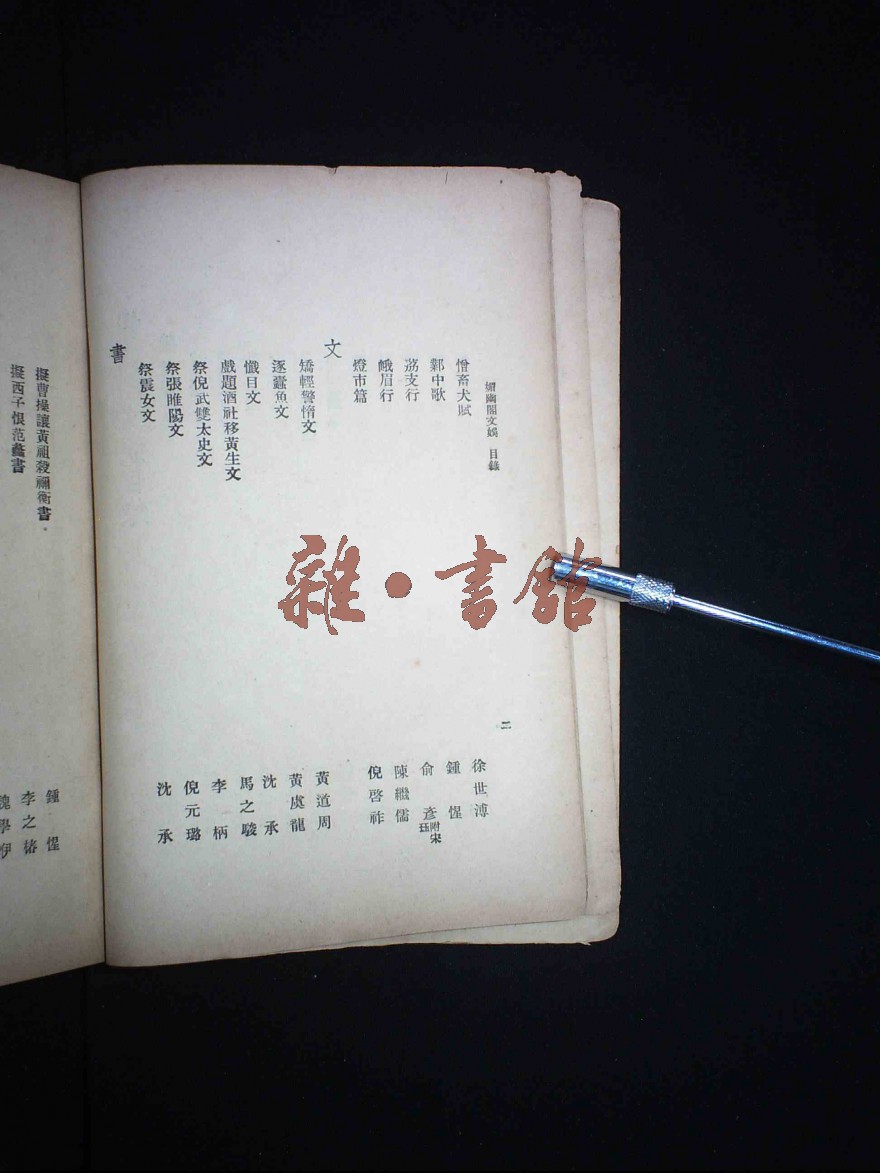 媚幽閣文娛 目錄
二
憎畜犬賦 徐世溥
鄴中歌 鍾惺
荔支行 俞彥 附宋珏
峨眉行 陳繼儒
燈市篇 倪啓祚
文
矯輕警惰文 黃道周
逐蠹魚文 黃虞龍
懺目文 沈承
戲題酒社移黃生文 馬之駿
祭倪武雙太史文 李柄
祭張睢陽文 倪元璐
祭震女文 沈承
書
擬曹操讓黃祖殺禰衡書 鍾惺
擬西子恨范蠡書 李之椿
魏學洢
雜·書館